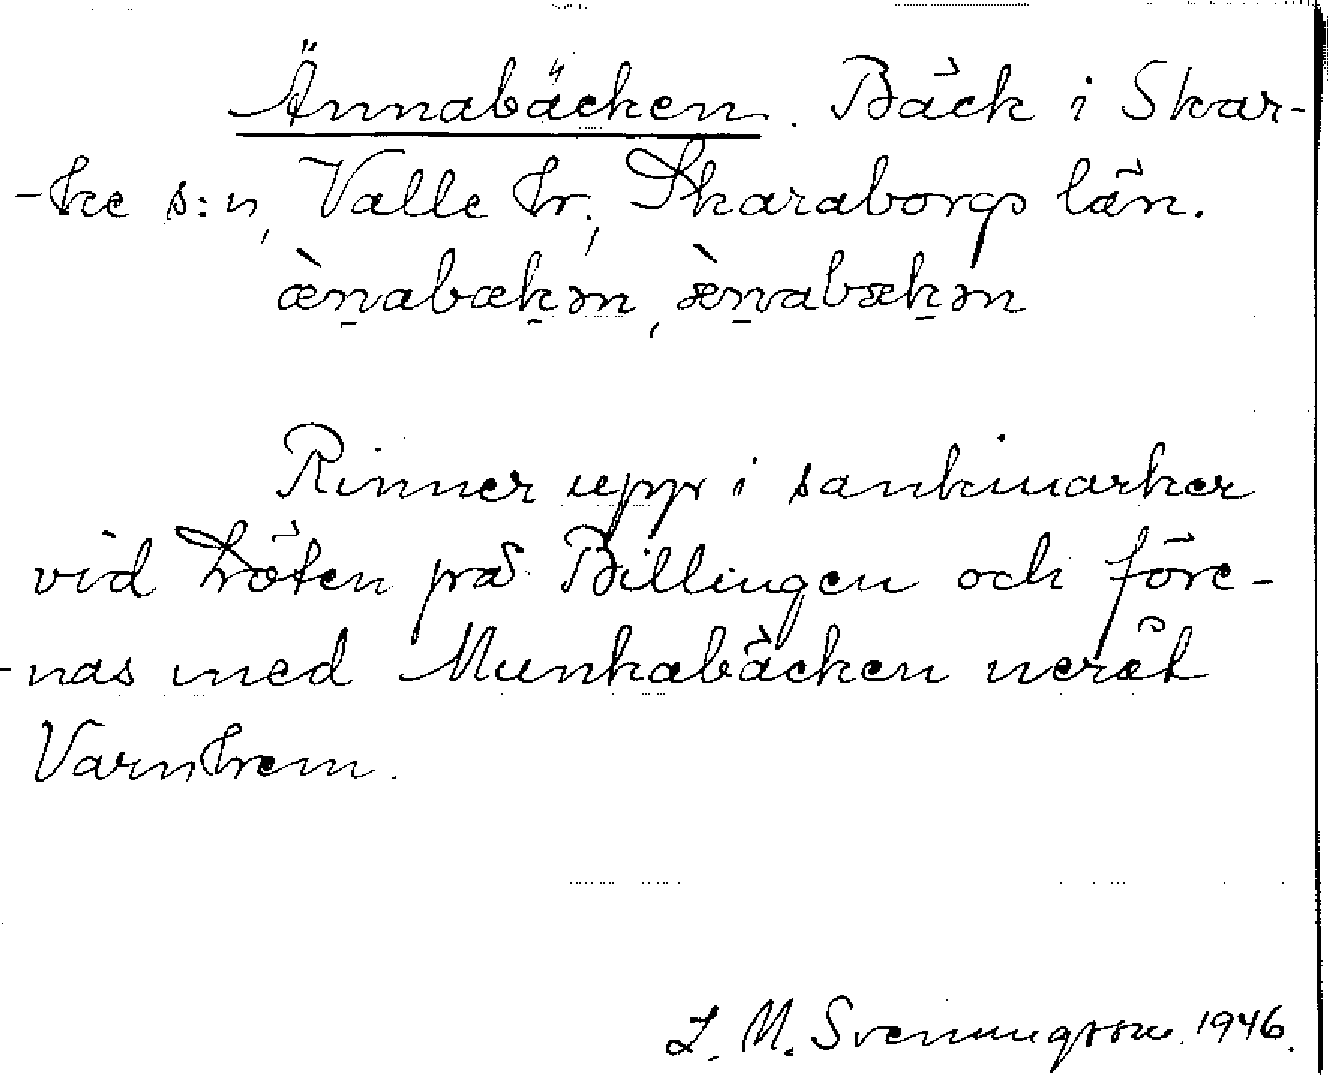 Ännabäcken. Bäck i Skar-
-ke s:n, Valle hr, Skaraborgs län.
æ̀n̠abæk̠ən, æ̀n̠abæk̠ən
Rinner upp i sankmarker
vid Höten på Billingen och före-
-nas med Munkabäcken neråt
Varnhem.
L. M. Svenungsson 1946.